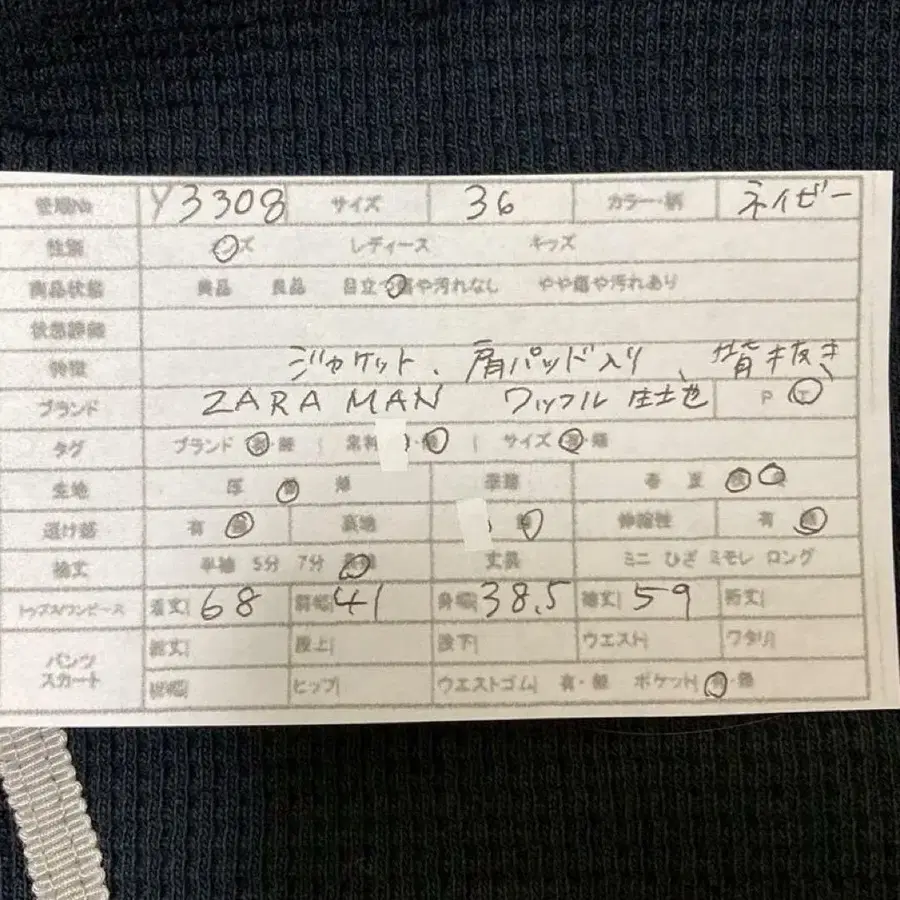 管理No Y3308 サイズ 36 カラー・柄 ネイビー
性別 レディース キッズ
商品状態 美品 良品 目立つ傷や汚れなし やや傷や汚れあり
状態詳細
特徴 ジャケット、肩パッド入り、背抜き
ブランド ZARA MAN ワッフル生地 P
タグ ブランド 有・無 | 素料 | サイズ 有・無
生地 厚 薄 季節 春 夏
透け感 有 裏地 伸縮性 有 無
袖丈 半袖 5分 7分 長袖 丈長 ミニ ひざ ミモレ ロング
トップス/ワンピース 着丈| 68 肩幅| 41 身幅| 38.5 袖丈| 59 裄丈|
パンツ スカート 総丈| 股上| 股下| ウエスト| ワタリ|
裾幅| ヒップ| ウエストゴム| 有・無 ポケット| 有・無